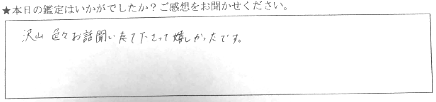 ★本日の鑑定はいかがでしたか？ご感想をお聞かせください。
沢山 色々お話聞い来て下さって嬉しかったです。